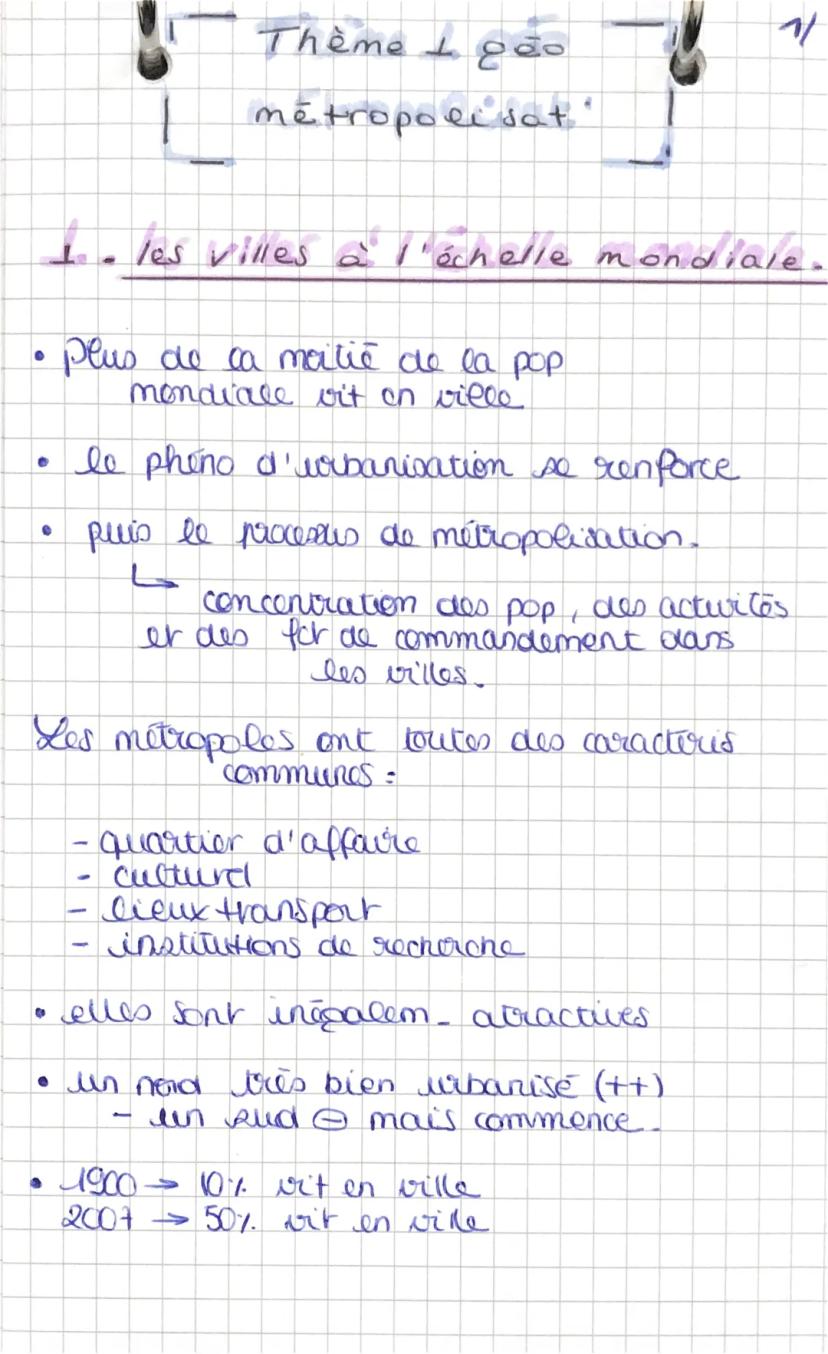 1/
Thème 1 géo
métropolisat°
1. les villes à l'échelle mondiale.
• plus de la moitié de la pop
mondiale vit en ville
• le phéno d'urbanisation se renforce
• puis le processus de métropolisation.
↳ concentration des pop, des activités
et des fct de commandement dans
les villes.
Les métropoles ont toutes des caractéris
communes :
- quartier d'affaire
- culturel
- lieux transport
- institutions de recherche
• elles sont inégalem. attractives
• un nord très bien urbanisé (++)
- un sud ⊖ mais commence.
• 1900 → 10% vit en ville
2007 → 50% vit en ville